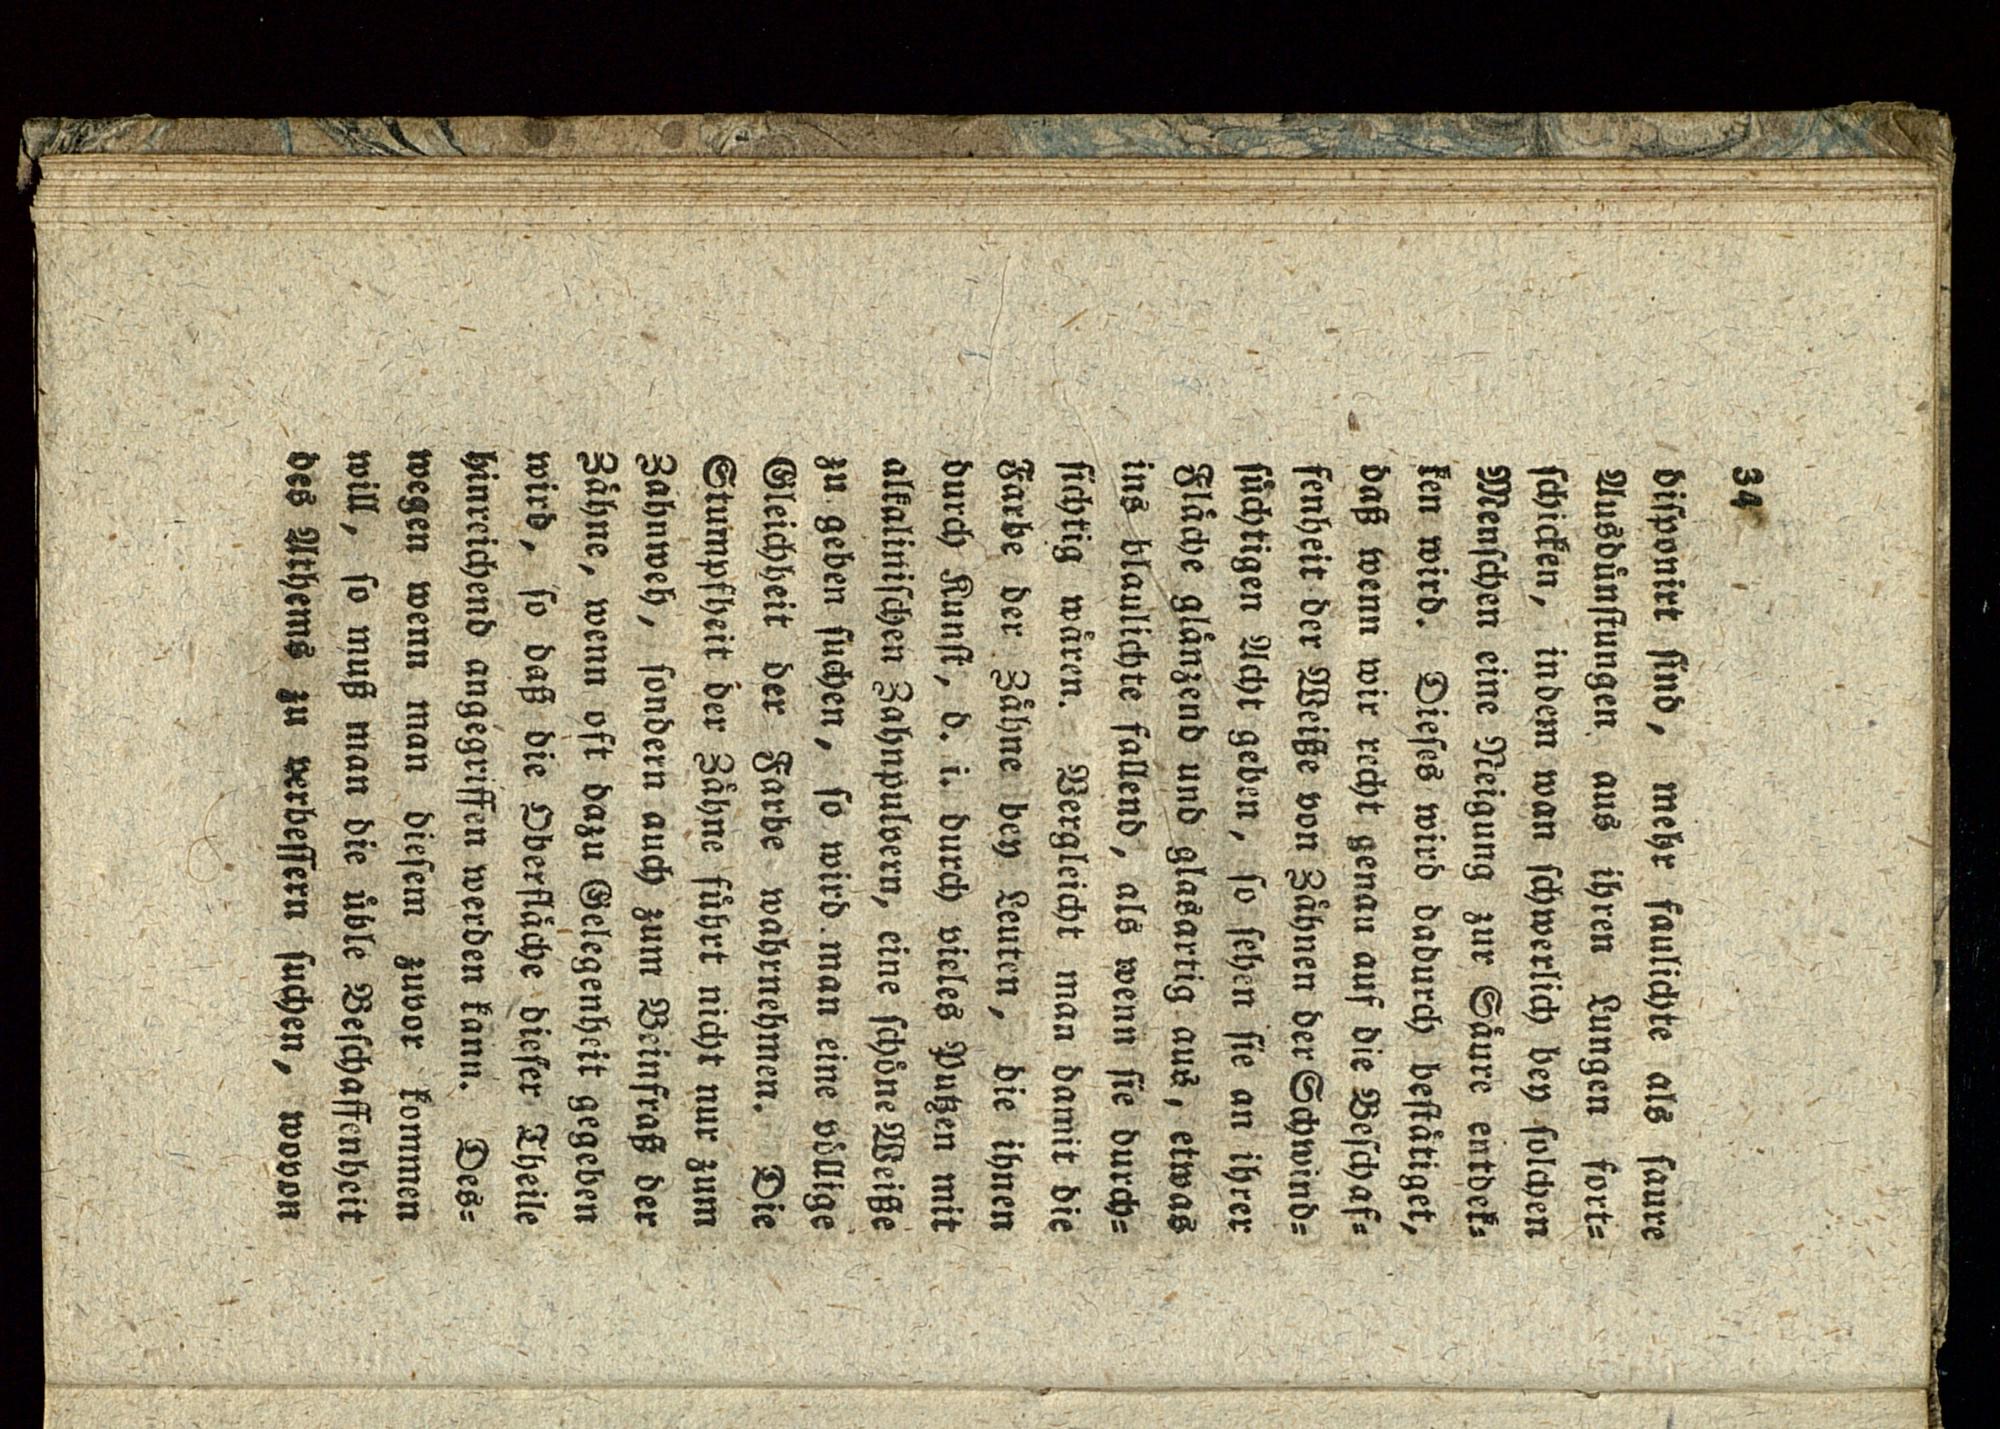 34
diſponirt ſind, mehr faulichte als ſaure
Ausdünſtungen aus ihren Lungen fort-
ſchicken, indem man ſchwerlich bey ſolchen
Menſchen eine Neigung zur Säure entdek-
ken wird. Dieſes wird dadurch beſtätiget,
daß wenn wir recht genau auf die Beſchaf-
fenheit der Weiße von Zähnen der Schwind-
ſüchtigen Acht geben, ſo ſehen ſie an ihrer
Fläche glänzend und glasartig aus, etwas
ins blaulichte fallend, als wenn ſie durch-
ſichtig wären. Vergleicht man damit die
Farbe der Zähne bey Leuten, die ihnen
durch Kunſt, d. i. durch vieles Putzen mit
alkaliniſchen Zahnpulvern, eine ſchöne Weiße
zu geben ſuchen, ſo wird man eine völlige
Gleichheit der Farbe wahrnehmen. Die
Stumpfheit der Zähne führt nicht nur zum
Zahnweh, ſondern auch zum Beinfraß der
Zähne, wenn oft dazu Gelegenheit gegeben
wird, ſo daß die Oberfläche dieſer Theile
hinreichend angegriffen werden kann. Des-
wegen wenn man dieſem zuvor kommen
will, ſo muß man die üble Beſchaffenheit
des Athems zu verbeſſern ſuchen, wovon